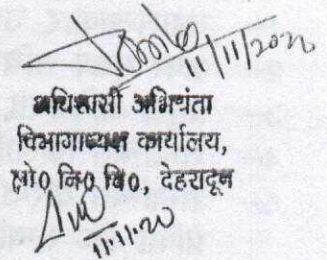 11/11/2020
अधिसासी अभियंता
विभागाध्यक्ष कार्यालय,
लो० नि० वि०, देहरादून
11.11.20